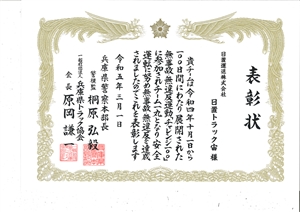 表彰状
日置運送株式会社
日置トラック宙様
貴チームは令和四年十月一日から
一〇〇日間にわたり展開された
無事故無違反運動「チャレンジ一〇〇」
に参加されチーム一丸となり安全
運転に努め無事故無違反を達成
されましたのでこれを表彰します
令和五年三月一日
兵庫県警察本部長
警視監 桐原弘毅
一般社団法人 兵庫県トラック協会
会長 原岡謙一